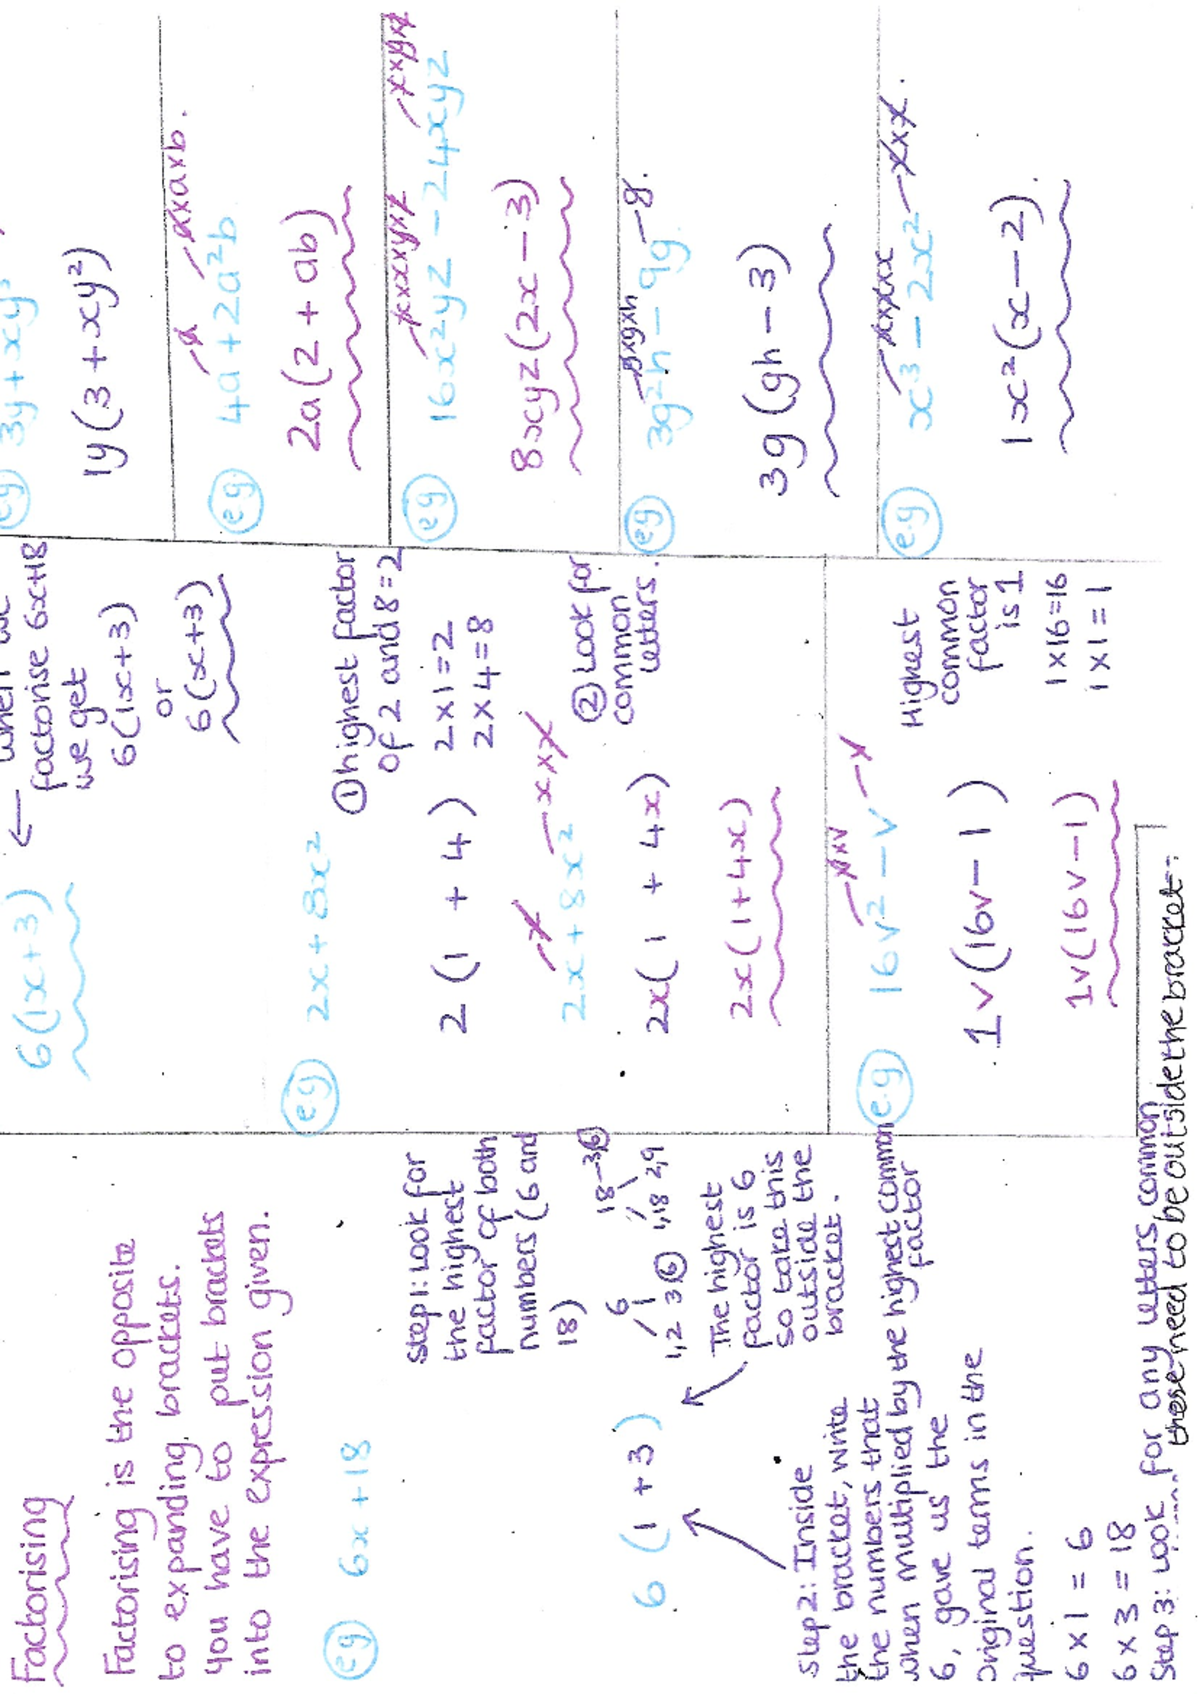 Factorising
Factorising is the opposite
to expanding brackets.
You have to put brackets
into the expression given.
eg 6x + 18
Step 1: Look for
the highest
factor of both
numbers (6 and
18)
6
1, 2 3 6
18 - 3 6
1, 18 2, 9
6 (1 + 3)
The highest
factor is 6
so take this
outside the
bracket.
Step 2: Inside
the bracket, write
the numbers that
when multiplied by the highest common
factor
6, gave us the
original terms in the
question.
6 x 1 = 6
6 x 3 = 18
Step 3: Look for any letters common
these need to be outside the bracket.
6(1x+3)
← when we
factorise 6x+18
we get
6(1x+3)
or
6(x+3)
eg 2x + 8x²
① highest factor
of 2 and 8 = 2
2 (1 + 4)
2 x 1 = 2
2 x 4 = 8
x
x x x
2x + 8x²
② Look for
common
letters.
2x(1 + 4x)
2x(1+4x)
v x v
v
e.g 16v² - v
Highest
common
factor
is 1
1v(16v - 1)
1 x 16 = 16
1 x 1 = 1
1v(16v - 1)
eg 3y + xy³
1y(3 + xy²)
a
a x a x b.
eg 4a + 2a²b
2a(2 + ab)
x x x x y x z
x x y x z
eg 16x²yz - 24xyz
8xyz(2x - 3)
g x g x h
g.
eg 3g²h - 9g
3g(gh - 3)
x x x x x
x x x.
e.g x³ - 2x²
1x²(x - 2).